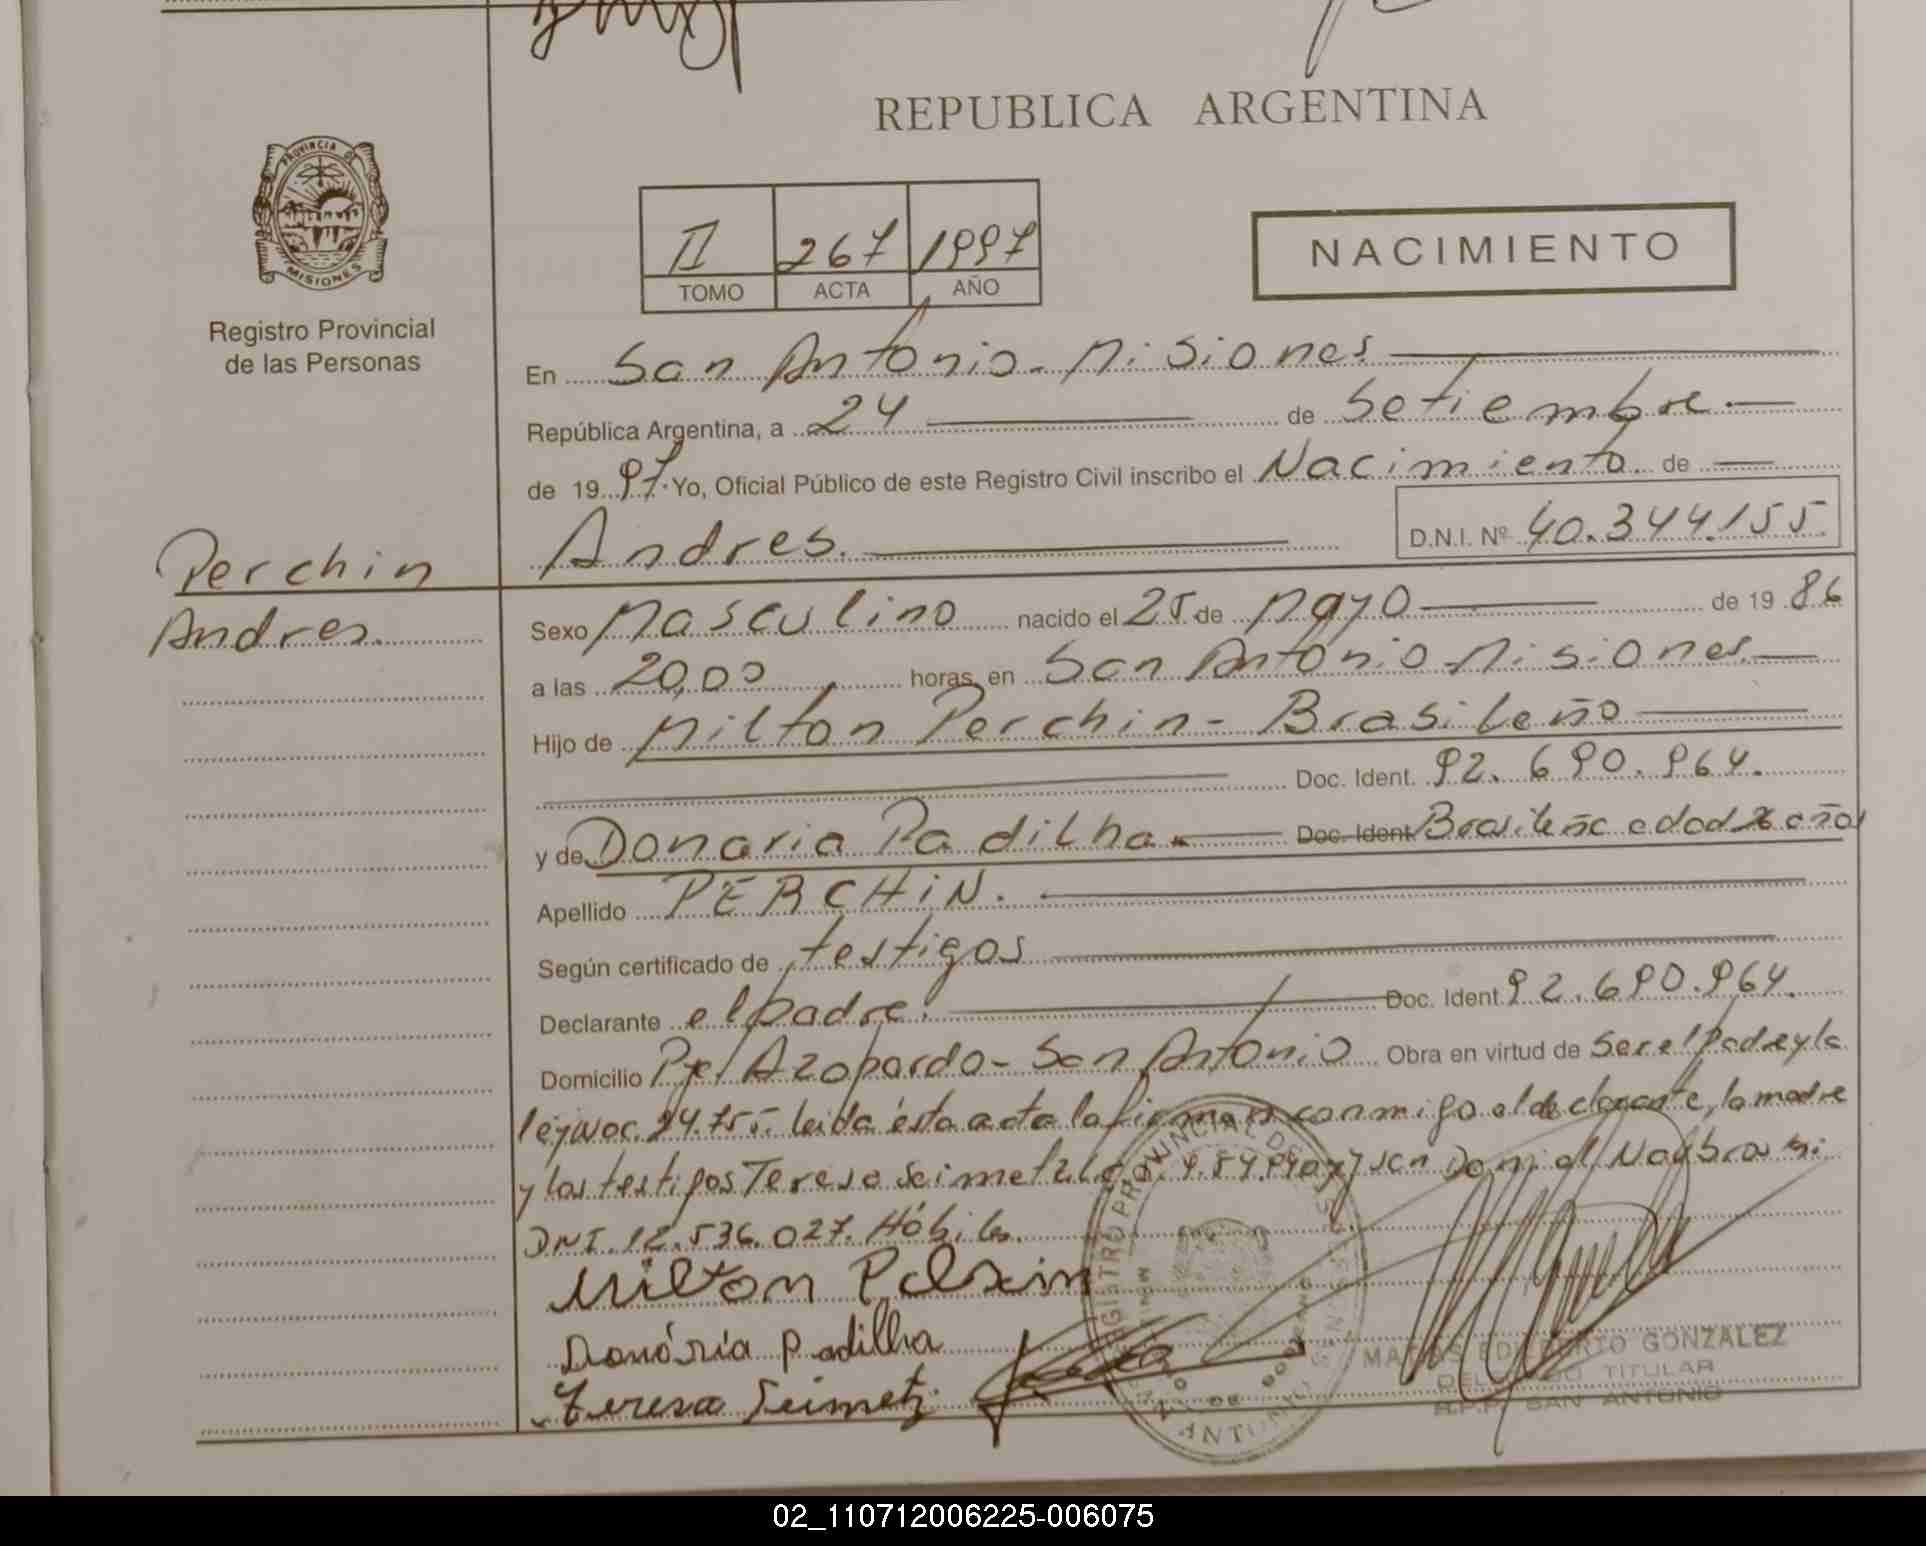 REPUBLICA ARGENTINA
PROVINCIA DE
MISIONES
Registro Provincial
de las Personas
II 267 1997
TOMO ACTA AÑO
NACIMIENTO
En San Antonio - Misiones
República Argentina, a 24 de Setiembre
de 1997. Yo, Oficial Público de este Registro Civil inscribo el Nacimiento de
Andres. D.N.I. Nº 40.344.155
Perchin
Andres.
Sexo Masculino nacido el 25 de Mayo de 1986
a las 20,00 horas, en San Antonio - Misiones
Hijo de Milton Perchin - Brasileño
Doc. Ident. 92.690.964.
y de Donaria Padilha. Doc. Ident. Brasileña edad años
Apellido PERCHIN.
Según certificado de testigos
Declarante el padre. Doc. Ident. 92.690.964.
Domicilio Pje/ Azopardo - San Antonio Obra en virtud de Ser el Padre y la
ley 24.755 - Leida ésta acta la firman conmigo el declarante, la madre
y los testigos Teresa Seimetz y Daniel
DNI. 12.536.027. Hábiles.
Milton
Donória Padilha
Teresa Seimetz
REGISTRO PROVINCIAL DE
MATIAS EDILBERTO GONZALEZ
DELEGADO TITULAR
R.P.P. SAN ANTONIO
02_110712006225-006075